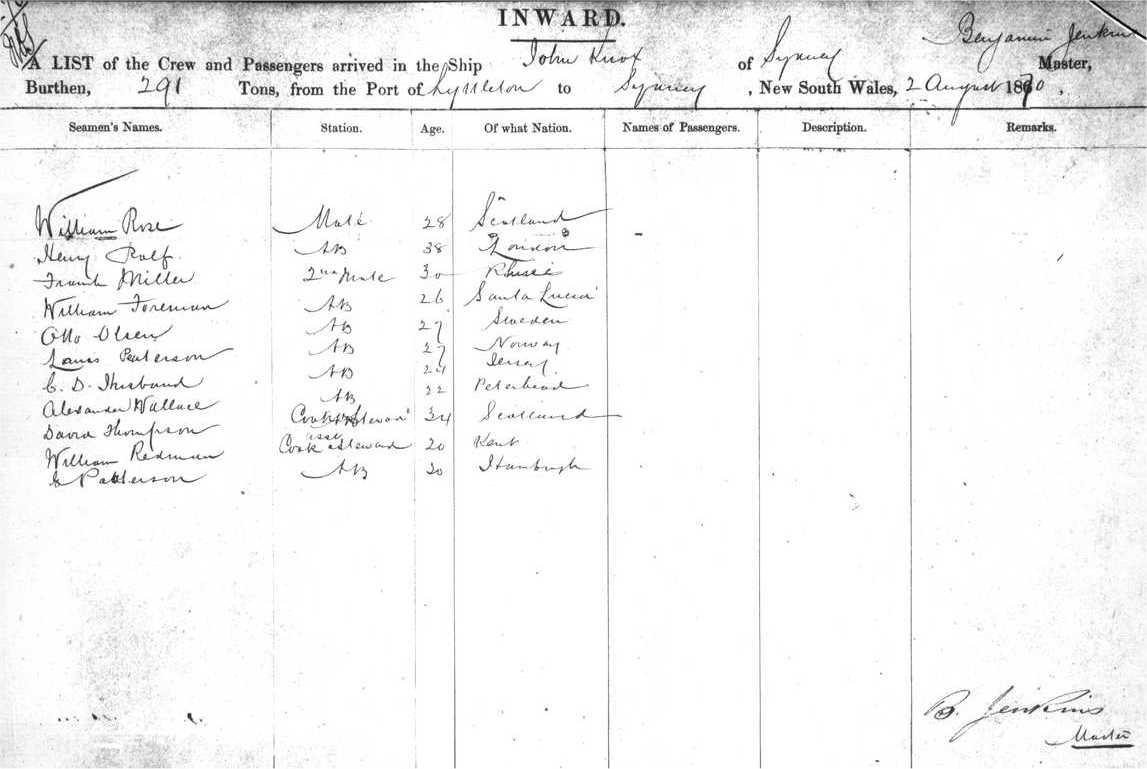 INWARD.
Benjamin Jenkins
A LIST of the Crew and Passengers arrived in the Ship John Knox of Sydney Master,
Burthen, 291 Tons, from the Port of Lyttleton to Sydney , New South Wales, 2 August 1870 ,
Seamen's Names. Station. Age. Of what Nation. Names of Passengers. Description. Remarks.
William Rose Mate 28 Scotland
Henry Rolf AB 38 London
Frank Miller 2nd Mate 30
William Foreman AB 26 Santa Lucia
Otto Olsen AB 27 Sweden
Peterson AB 27 Norway
C. D. Husband AB 24 Jersey
Alexander Wallace AB 22 Peterhead
David Thompson Cook & Steward 34 Scotland
William Redman asst Cook & Steward 20 Kent
Patterson AB 30 Hamburgh
B. Jenkins
Master